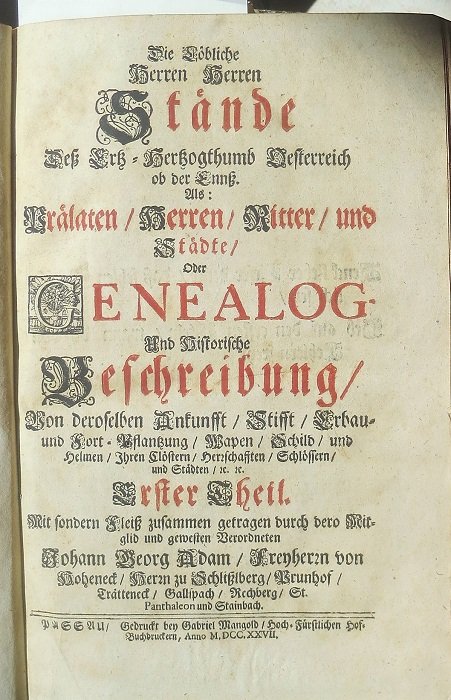 Die Löbliche
Herren Herren
Stände
Deß Ertz-Hertzogthumb Oesterreich
ob der Ennß.
Als:
Prälaten / Herren / Ritter / und
Städte /
Oder
GENEALOG-
Und Historische
Beschreibung /
Von deroselben Ankunfft / Stifft / Erbau-
und Fort-Pflantzung / Wapen / Schild / und
Helmen / Ihren Clöstern / Herrschafften / Schlössern /
und Städten / ꝛc. ꝛc.
Erster Theil.
Mit sondern Fleiß zusammen getragen durch dero Mit-
glid und gewesten Verordneten
Johann Georg Adam / Freyherrn von
Hoheneck / Herrn zu Schlißlberg / Prunhof /
Trätteneck / Gallspach / Rechberg / St.
Panthaleon und Stainbach.
PASSAU / Gedruckt bey Gabriel Mangold / Hoch-Fürstlichen Hof-
Buchdruckern, Anno M,DCC.XXVII.